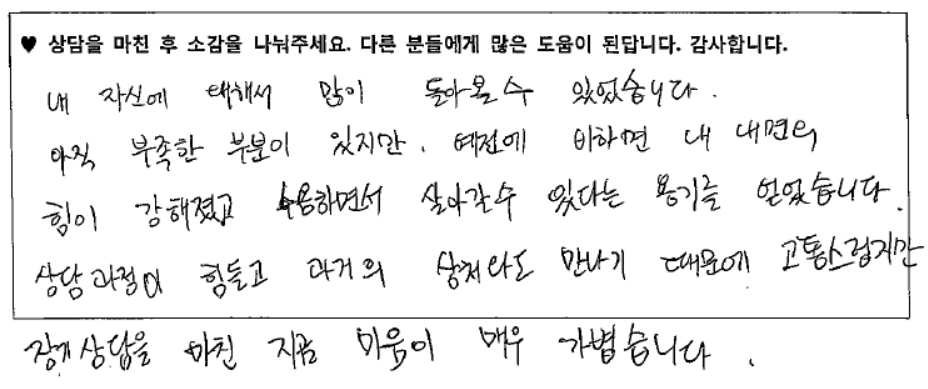 ♥ 상담을 마친 후 소감을 나눠주세요. 다른 분들에게 많은 도움이 된답니다. 감사합니다.
내 자신에 대해서 많이 돌아볼 수 있었습니다.
아직 부족한 부분이 있지만, 예전에 비하면 내 내면의
힘이 강해졌고 수용하면서 살아갈수 있다는 용기를 얻었습니다.
상담과정이 힘들고 과거의 상처와도 만나기 때문에 고통스럽지만
장기상담을 마친 지금 마음이 매우 가볍습니다.